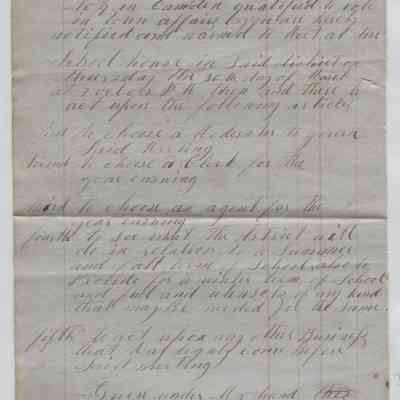 in Camden qualified to vote
in town affairs are hereby
notified and warned to Meet at the
School house in said district on
Thursday the 30th day of March
at 7 oclock P.M. then and there to
act upon the following articles
First to choose a Moderator to govern
Said Meeting
Second to choose a Clerk for the
year ensuing
third to choose an agent for the
year ensuing
fourth to see what the district will
do in relation to a Summer
and fall term School also to
Provide for a winter term of School
and fuel and utensils of any kind
that may be needed for the same
fifth to act upon any other Business
that may legally come before
Said meeting
Given under My hand this